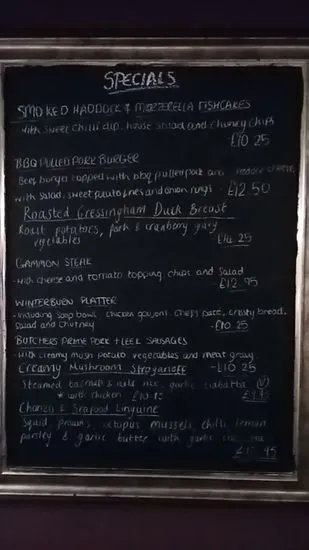 SPECIALS
SMOKED HADDOCK & MOZZERELLA FISHCAKES
with sweet chilli dip, house salad and chunky chips
£10.25
BBQ PULLED PORK BURGER
Beef burger topped with bbq pulled pork and cheese,
with salad, sweet potato fries and onion rings - £12.50
Roasted Gressingham Duck Breast
Roast potatoes, pork & cranberry gravy
vegetables
GAMMON STEAK
- with cheese and tomato topping, chips and salad
- £12.95
WINTERBURN PLATTER
- including soup bowl, chicken goujons, chefs pate, crusty bread,
salad and chutney - £10.25
BUTCHERS PRIME PORK & LEEK SAUSAGES
- with creamy mash potato, vegetables and meat gravy
Creamy Mushroom Stroganoff - £10.25
Steamed basmati & wild rice, garlic ciabatta (V)
* with chicken
Chorizo & Seafood Linguine
Squid, prawns, octopus, mussels, chilli, lemon
parsley & garlic butter with garlic